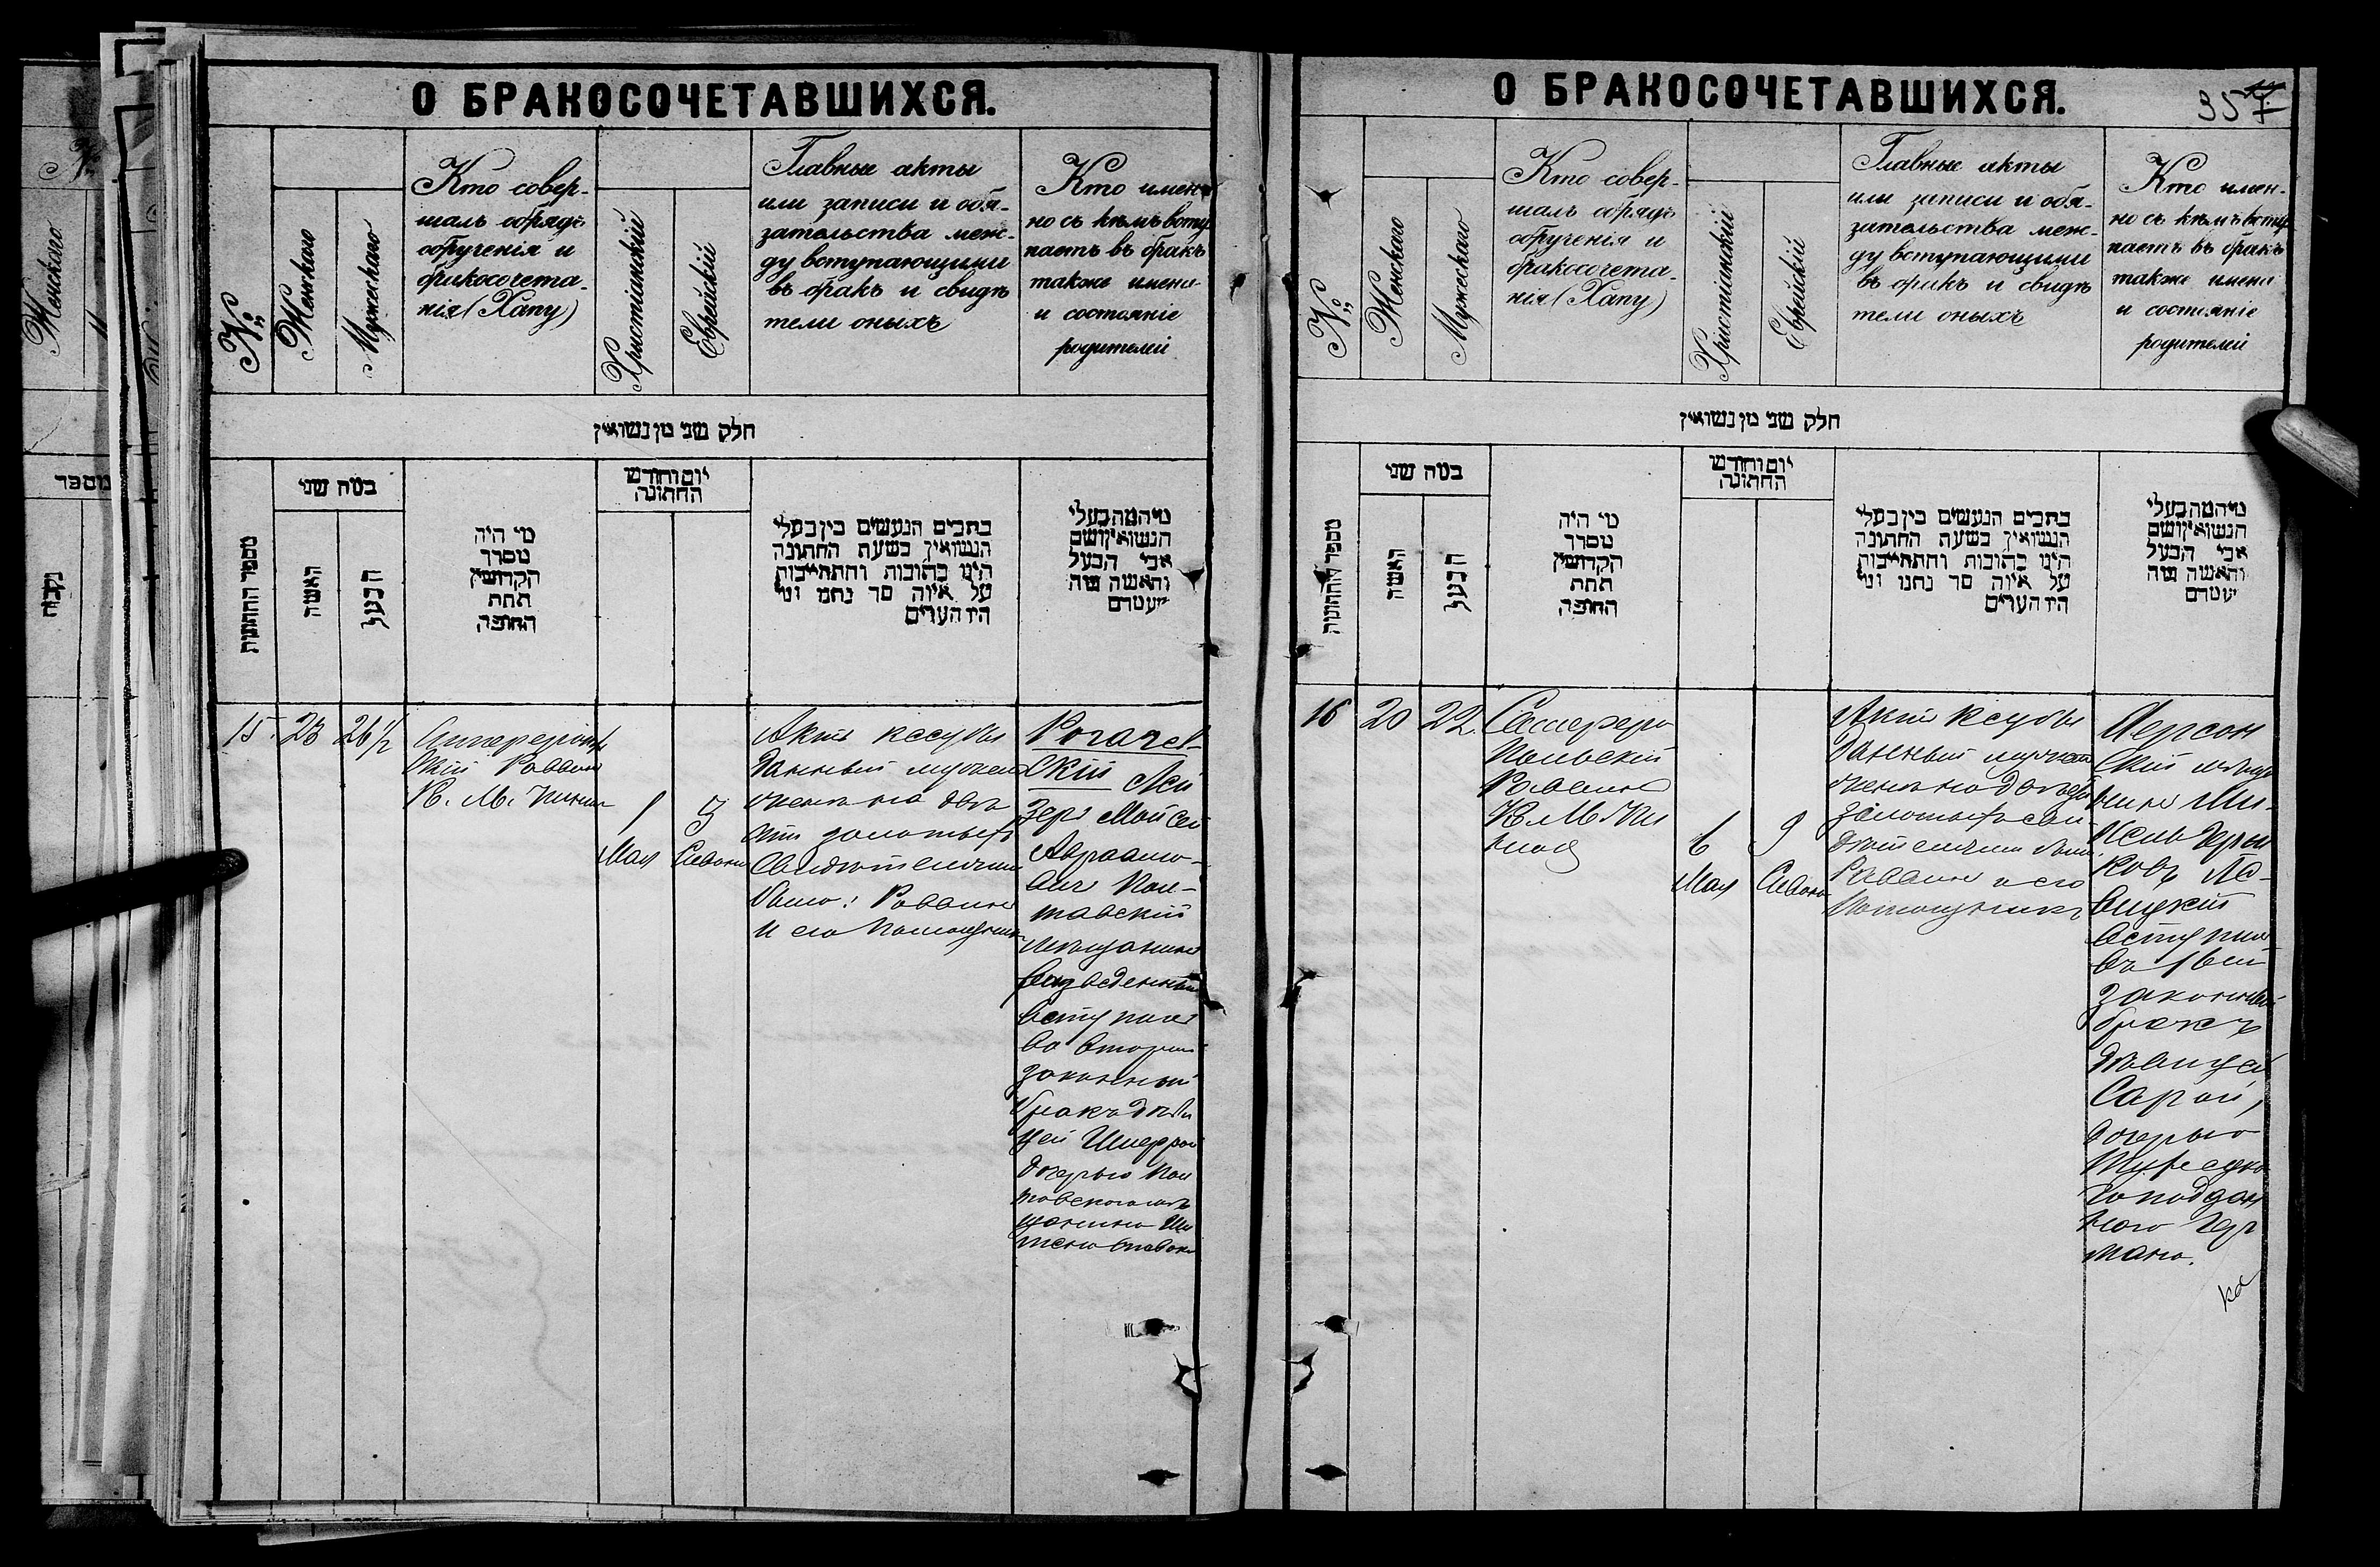 О БРАКОСОЧЕТАВШИХСЯ.
№
Женскаго
Мужескаго
Кто совер-
шалъ обрядъ
обрученія и
бракосочета-
нія (Хапу)
Христіанскій
Еврейскій
Главные акты
или записи и обя-
зательства меж-
ду вступающими
въ бракъ и свидѣ
тели оныхъ
Кто имен-
но съ кѣмъ всту
паетъ въ бракъ
также имена
и состояніе
родителей
חלק שני מן נשואין
מספר החתונות
במה שני
האשה
הבעל
מי היה
מסדר
הקדושין
תחת
החופה
יום וחודש
החתונה
כתבים הנעשים בין בעלי
הנשואין בשעת החתונה
היינו כתובות והתחייבות
על איזה סך נתנו ומי
היו העדים
מי המה בעלי
הנשואין ושם
אבי הבעל
והאשה מה
מעמדם
15.
23
26½
Раввинъ
К. М.
1
Мая
3
Сивана
Актъ ксубы
данный мужемъ
женѣ на двѣ
сти золотыхъ
Свидѣтелями
были: Раввинъ
и его помощникъ
Рогачев-
скій Лей
зеръ Мойсей
Авраамо-
вичъ Пол-
тавскій
мѣщанинъ
разведенный
вступилъ
во вторый
законный
бракъ дѣви
цей
дочерью Пол
тавскаго мѣ
щанина
О БРАКОСОЧЕТАВШИХСЯ.
35
№
Женскаго
Мужескаго
Кто совер-
шалъ обрядъ
обрученія и
бракосочета-
нія (Хапу)
Христіанскій
Еврейскій
Главные акты
или записи и обя-
зательства меж-
ду вступающими
въ бракъ и свидѣ
тели оныхъ
Кто имен-
но съ кѣмъ всту
паетъ въ бракъ
также имена
и состояніе
родителей
חלק שני מן נשואין
מספר החתונות
במה שני
האשה
הבעל
מי היה
מסדר
הקדושין
תחת
החופה
יום וחודש
החתונה
כתבים הנעשים בין בעלי
הנשואין בשעת החתונה
היינו כתובות והתחייבות
על איזה סך נתנו ומי
היו העדים
מי המה בעלי
הנשואין ושם
אבי הבעל
והאשה מה
מעמדם
16
20
22.
Симферо
польскій
Раввинъ
К. М.
6
Мая
9
Сивана
Актъ ксубы
данный мужемъ
женѣ на двѣсти
золотыхъ сви
дѣтелями были:
Раввинъ и его
помощникъ
Херсон
скій мѣща
нинъ
вступилъ
въ 1вый
законный
бракъ
дѣвицей
Сарой,
дочерью
Турецка
го поддан
наго Гер
мана.